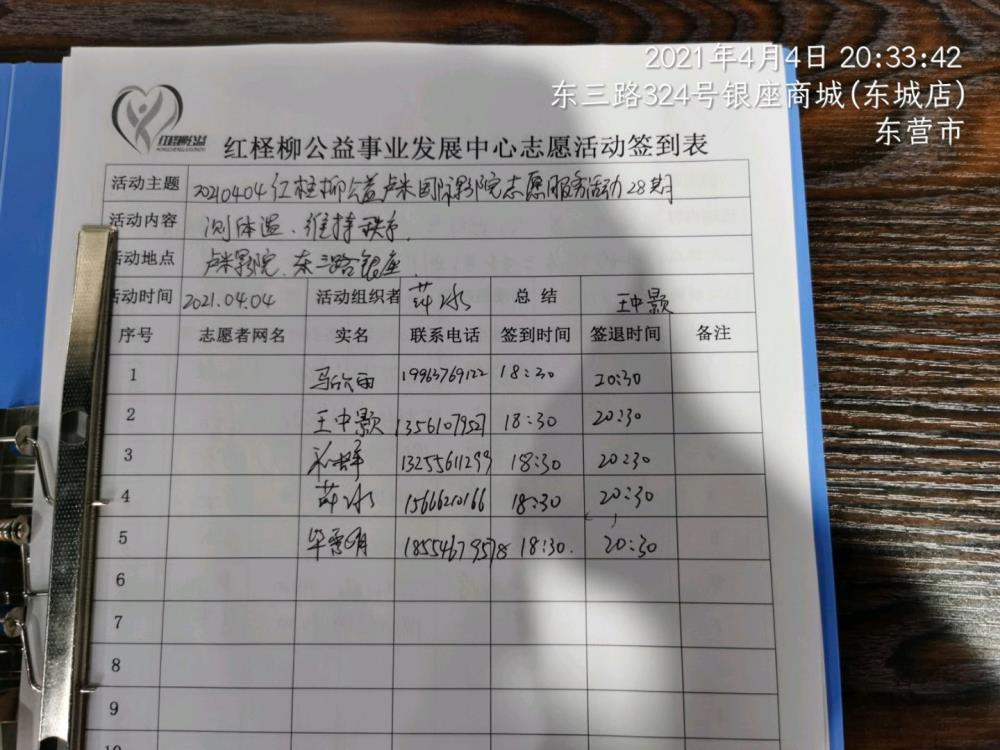 2021年4月4日 20:33:42
东三路324号银座商城(东城店)
东营市
红柽柳公益
红柽柳公益事业发展中心志愿活动签到表
活动主题 20210404红柽柳公益卢米国际影院志愿服务活动28期
活动内容 测体温、维持秩序.
活动地点 卢米影院、东三路银座.
活动时间 2021.04.04 活动组织者 萍冰 总结 王中颢
序号 志愿者网名 实名 联系电话 签到时间 签退时间 备注
1 马欣雨 19963769122 18:30 20:30
2 王中颢 1356107952 18:30 20:30
3 13255611299 18:30 20:30
4 萍冰 15666210166 18:30 20:30
5 毕雪明 18554679578 18:30. 20:30
6
7
8
9
10